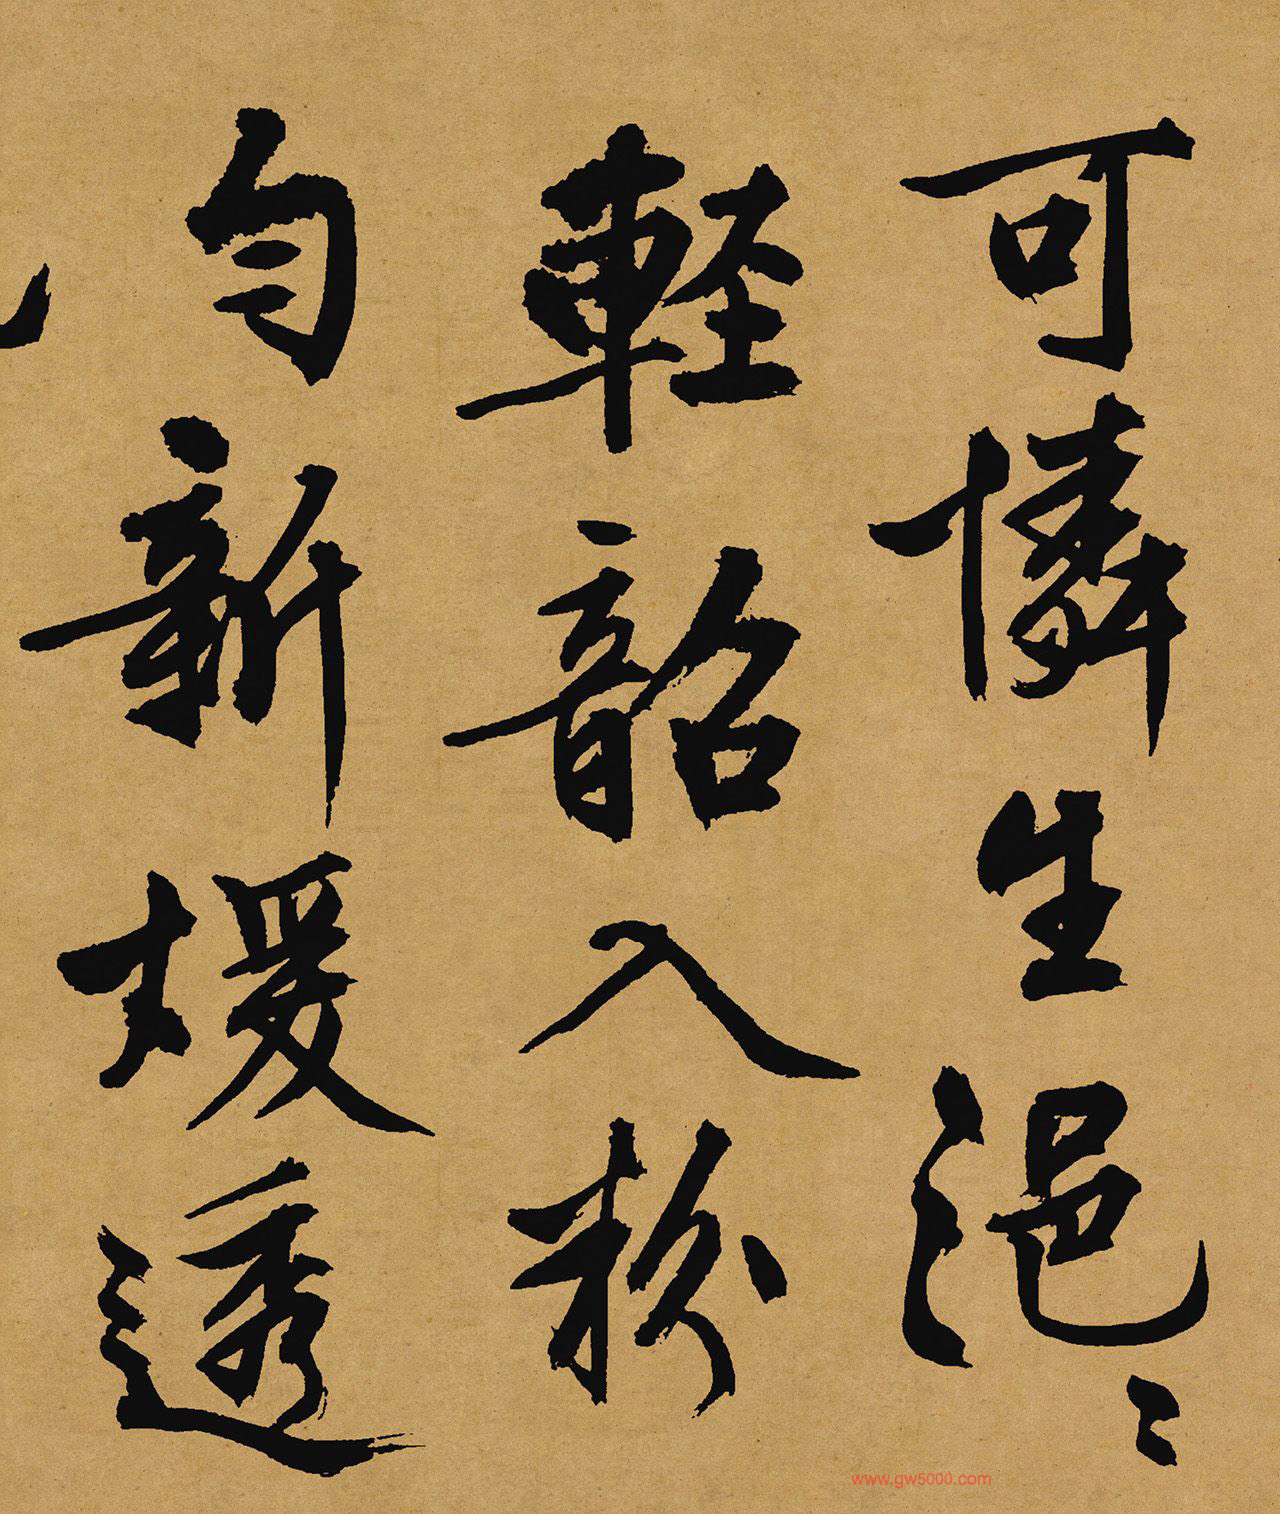 可憐生浥〻
輕韶入粉
勻新煖透
www.gw5000.com